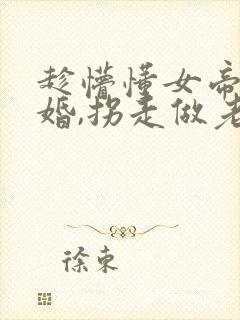 趁懵懂女帝
婚,拐走做老
徐东